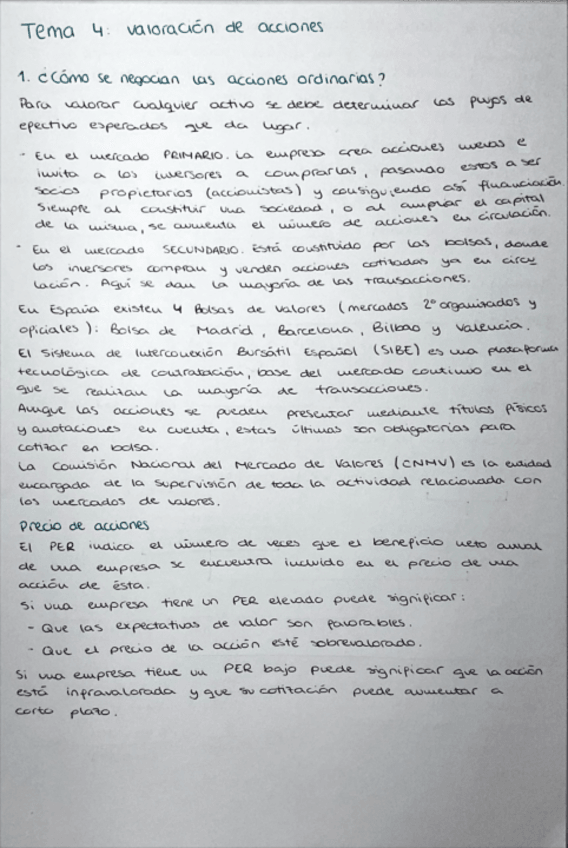 Tema 4: valoración de acciones
1. ¿Cómo se negocian las acciones ordinarias?
Para valorar cualquier activo se debe determinar los flujos de
efectivo esperados que da lugar.
- En el mercado PRIMARIO. La empresa crea acciones nuevas e
invita a los inversores a comprarlas, pasando estos a ser
socios propietarios (accionistas) y consiguiendo así financiación.
Siempre al constituir una sociedad, o al ampliar el capital
de la misma, se aumenta el número de acciones en circulación.
- En el mercado SECUNDARIO. Está constituido por las bolsas, donde
los inversores compran y venden acciones cotizadas ya en circu
lación. Aquí se dan la mayoría de las transacciones.
En España existen 4 Bolsas de Valores (mercados 2º organizados y
oficiales): Bolsa de Madrid, Barcelona, Bilbao y Valencia.
El Sistema de Interconexión Bursátil Español (SIBE) es una plataforma
tecnológica de contratación, base del mercado continuo en el
que se realizan la mayoría de transacciones.
Aunque las acciones se pueden presentar mediante títulos físicos
y anotaciones en cuenta, estas últimas son obligatorias para
cotizar en bolsa.
La Comisión Nacional del Mercado de Valores (CNMV) es la entidad
encargada de la supervisión de toda la actividad relacionada con
los mercados de valores.
Precio de acciones
El PER indica el número de veces que el beneficio neto anual
de una empresa se encuentra incluido en el precio de una
acción de ésta.
Si una empresa tiene un PER elevado puede significar:
- Que las expectativas de valor son favorables.
- Que el precio de la acción esté sobrevalorado.
Si una empresa tiene un PER bajo puede significar que la acción
está infravalorada y que su cotización puede aumentar a
corto plazo.